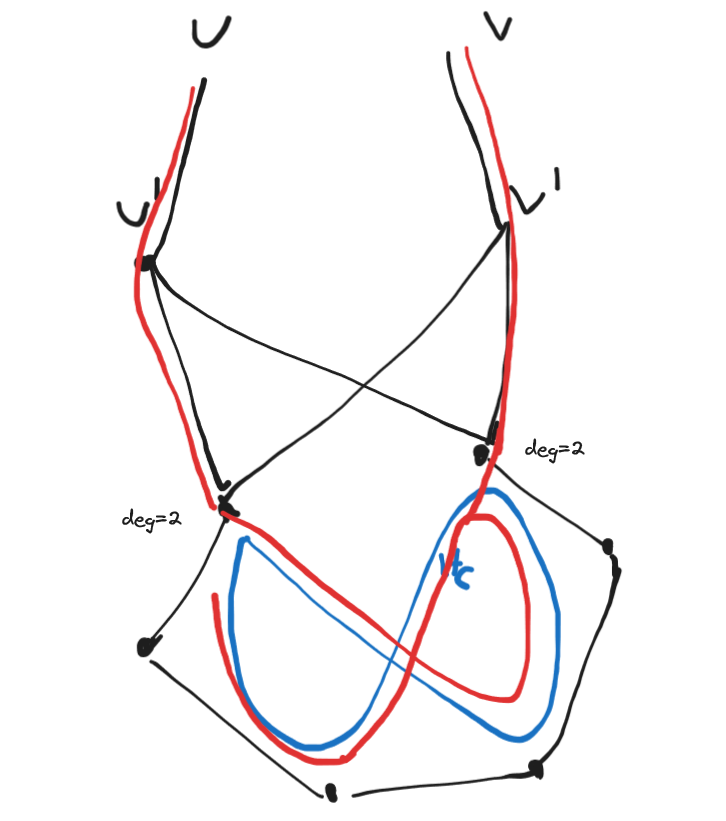 U
V
U'
V'
deg=2
deg=2
Hc